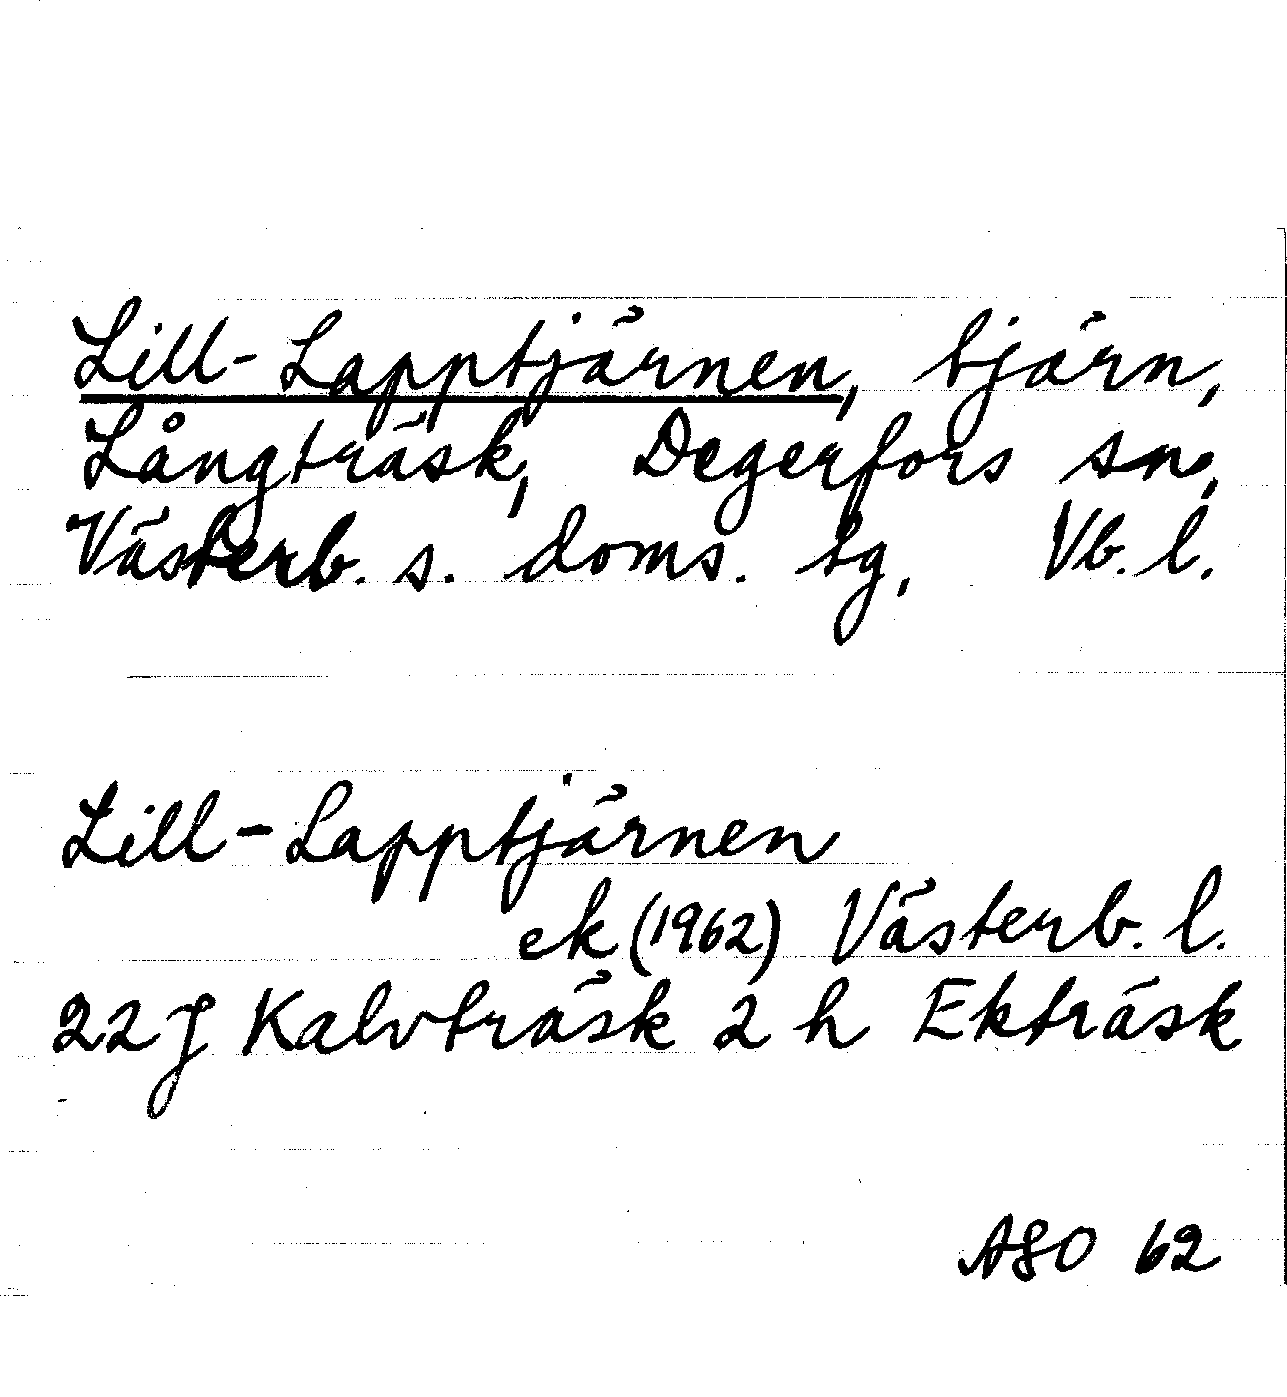 Lill-Lapptjärnen, tjärn,
Långträsk, Degerfors sn,
Västerb. s. doms. tg, Vb. l.
Lill-Lapptjärnen
ek (1962) Västerb. l.
22 J Kalvträsk 2 h Ekträsk
ASO 62